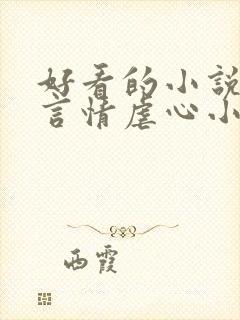 好看的小說
言情虐心小
西霞